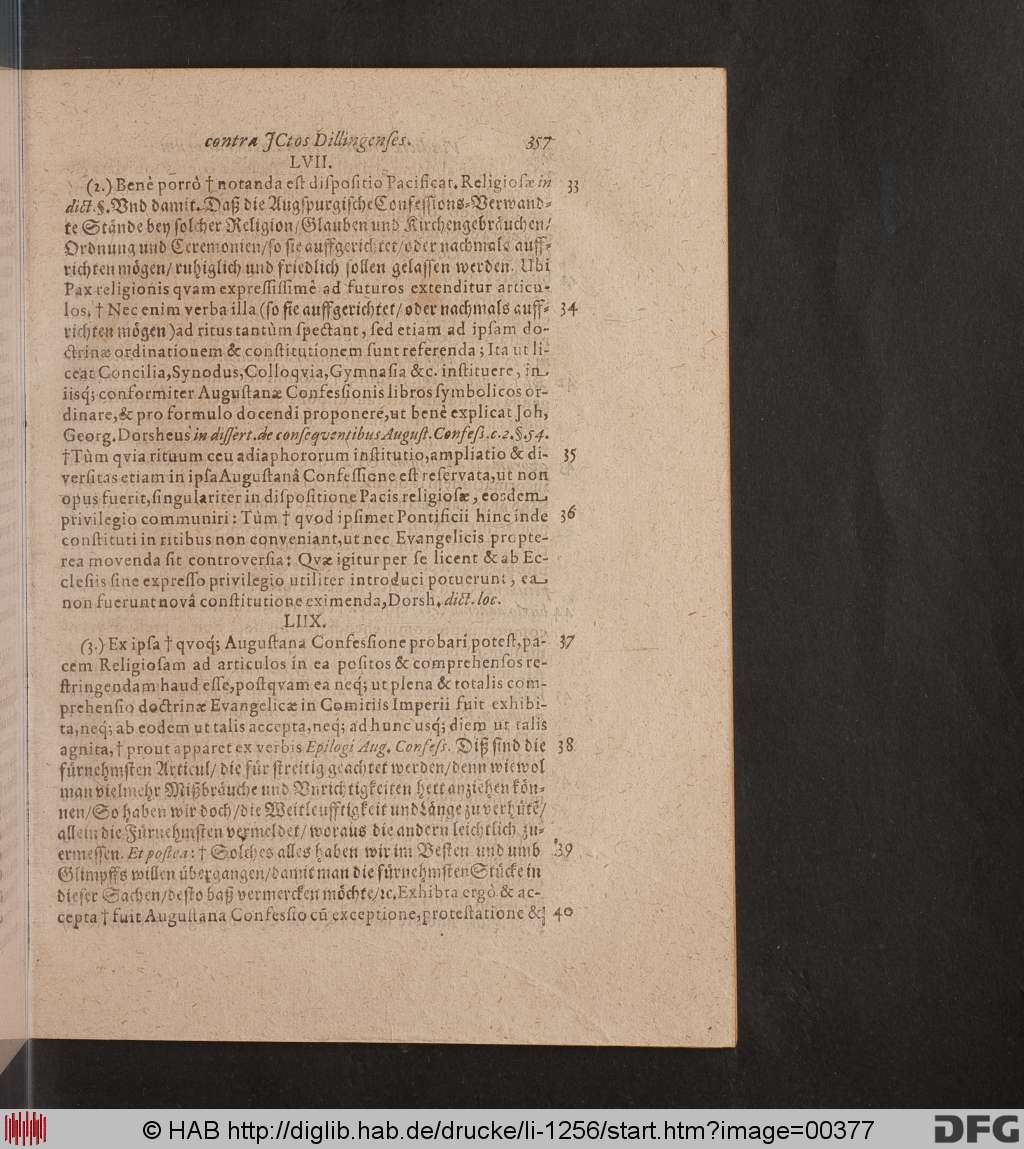 contra JCtos Dillingenſes. 357
LVII.
(2.) Benè porrò † notanda eſt diſpoſitio Pacificat. Religioſæ in 33
dict. §. Vnd damit. Daß die Augſpurgiſche Confeſſions-Verwand-
te Stände bey ſolcher Religion/ Glauben und Kirchengebräuchen/
Ordnung und Ceremonien/ ſo ſie auffgerichtet/ oder nachmals auff-
richten mögen/ ruhiglich und friedlich ſollen gelaſſen werden. Ubi
Pax religionis qvam expreſſiſſimè ad futuros extenditur articu-
los. † Nec enim verba illa (ſo ſie auffgerichtet/ oder nachmals auff- 34
richten mögen) ad ritus tantùm ſpectant, ſed etiam ad ipſam do-
ctrinæ ordinationem & conſtitutionem ſunt referenda; Ita ut li-
ceat Concilia, Synodus, Colloqvia, Gymnaſia &c. inſtituere, in
iisq; conformiter Auguſtanæ Confeſſionis libros ſymbolicos or-
dinare, & pro formulo docendi proponere, ut benè explicat Joh,
Georg. Dorsheus in diſſert. de conſeqventibus Auguſt. Confeſſ. c. 2. §. 54.
† Tùm qvia rituum ceu adiaphororum inſtitutio, ampliatio & di- 35
verſitas etiam in ipſa Auguſtanâ Confeſſione eſt reſervata, ut non
opus fuerit, ſingulariter in diſpoſitione Pacis religioſæ, eosdem
privilegio communiri: Tùm † qvod ipſimet Pontificii hinc inde 36
conſtituti in ritibus non conveniant, ut nec Evangelicis propte-
rea movenda ſit controverſia: Qvæ igitur per ſe licent & ab Ec-
cleſiis ſine expreſſo privilegio utiliter introduci potuerunt, ea
non fuerunt novâ conſtitutione eximenda, Dorsh. dict. loc.
LIIX.
(3.) Ex ipſa † qvoq; Auguſtana Confeſſione probari poteſt, pa- 37
cem Religioſam ad articulos in ea poſitos & comprehenſos re-
ſtringendam haud eſſe, poſtqvam ea neq; ut plena & totalis com-
prehenſio doctrinæ Evangelicæ in Comitiis Imperii fuit exhibi-
ta, neq; ab eodem ut talis accepta, neq; ad hunc usq; diem ut talis
agnita, † prout apparet ex verbis Epilogi Aug. Confeſſ. Diß ſind die 38
fürnehmſten Articul/ die für ſtreitig geachtet werden/ denn wiewol
man vielmehr Mißbräuche und Vnrichtigkeiten hett anziehen kön-
nen/ So haben wir doch/ die Weitleufftigkeit und Länge zu verhütē/
allein die Fürnehmſten vermeldet/ woraus die andern leichtlich zu-
ermeſſen. Et poſtea: † Solches alles haben wir im Beſten und umb 39
Glimpffs willen übergangen/ damit man die fürnehmſten Stücke in
dieſer Sachen/ deſto baß vermercken möchte/ ꝛc. Exhibta ergò & ac-
cepta † fuit Auguſtana Confeſſio cū exceptione, proteſtatione & 40
© HAB http://diglib.hab.de/drucke/li-1256/start.htm?image=00377
DFG